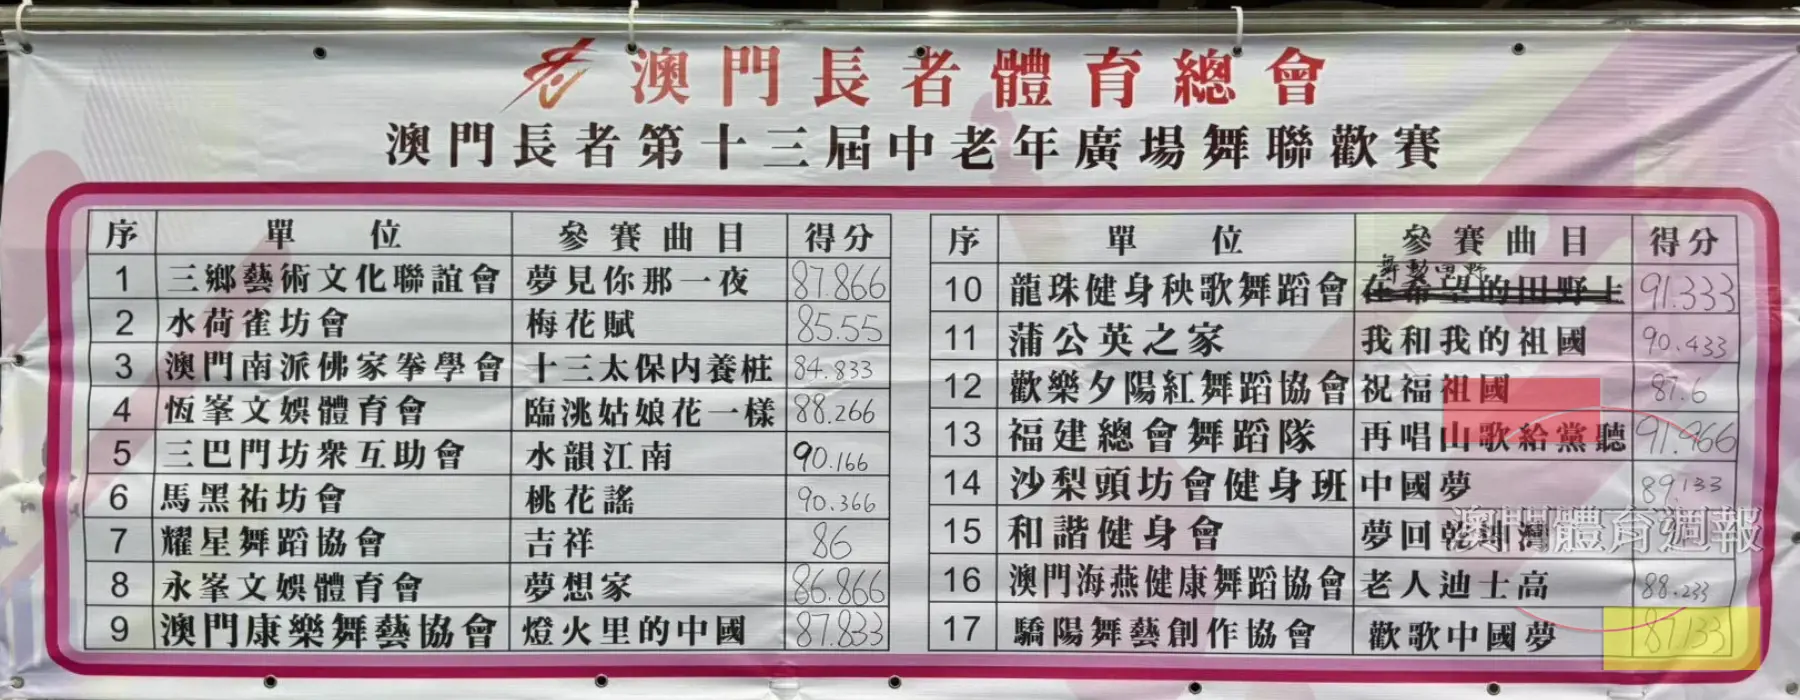 澳門長者體育總會
澳門長者第十三屆中老年廣場舞聯歡賽
序 單位 參賽曲目 得分
1 三鄉藝術文化聯誼會 夢見你那一夜 87.866
2 水荷雀坊會 梅花賦 85.55
3 澳門南派佛家拳學會 十三太保內養桩 84.833
4 恆峯文娛體育會 臨洮姑娘花一樣 88.266
5 三巴門坊衆互助會 水韻江南 90.166
6 馬黑祐坊會 桃花謠 90.366
7 耀星舞蹈協會 吉祥 86
8 永峯文娛體育會 夢想家 86.866
9 澳門康樂舞藝協會 燈火里的中國 87.833
序 單位 參賽曲目 得分
舞動田野
10 龍珠健身秧歌舞蹈會 在希望的田野上 91.333
11 蒲公英之家 我和我的祖國 90.433
12 歡樂夕陽紅舞蹈協會 祝福祖國 87.6
13 福建總會舞蹈隊 再唱山歌給黨聽 91.966
14 沙梨頭坊會健身班 中國夢 89.133
15 和諧健身會 夢回
澳門體育週報
16 澳門海燕健康舞蹈協會 老人迪士高 88.233
17 驕陽舞藝創作協會 歡歌中國夢 87.133